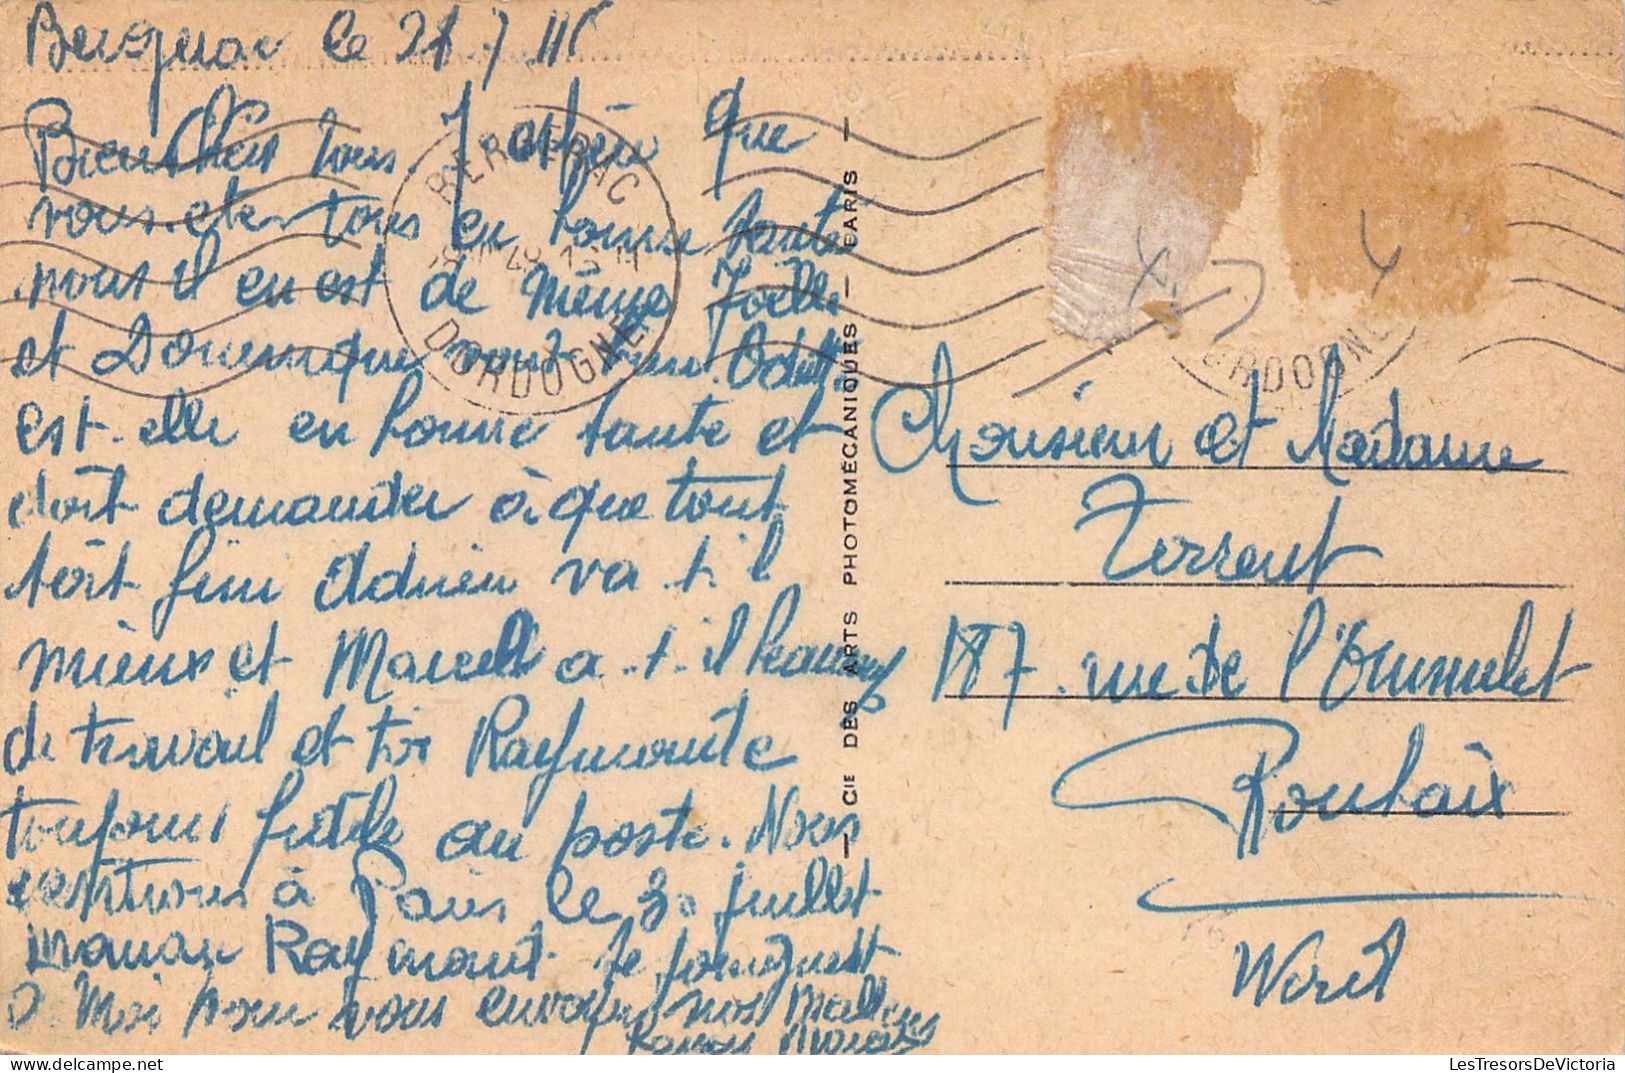 Bergerac le 21 7
Bien Chers tous J'espère que
vous ete tous en bonne sante
nous il en est de même Joëlle
et Dominique vont bien Odette
est elle en bonne sante et
doit demander à que tout
soit fini Adrien va t il
mieux et Marcel a t il beaucoup
de travail et toi Raymonde
toujours fidele au poste. Nous
rentrons à Paris le 30 juillet
maman Raymond
Moi nous vous envoyons nos meilleurs
BERGERAC
48 15 H
DORDOGNE
— CIE DES ARTS PHOTOMÉCANIQUES — PARIS —
ORDOGNE
Monsieur et Madame
Torrent
187 rue de l'Ommelet
Roubaix
Nord
LesTresorsDeVictoria.com